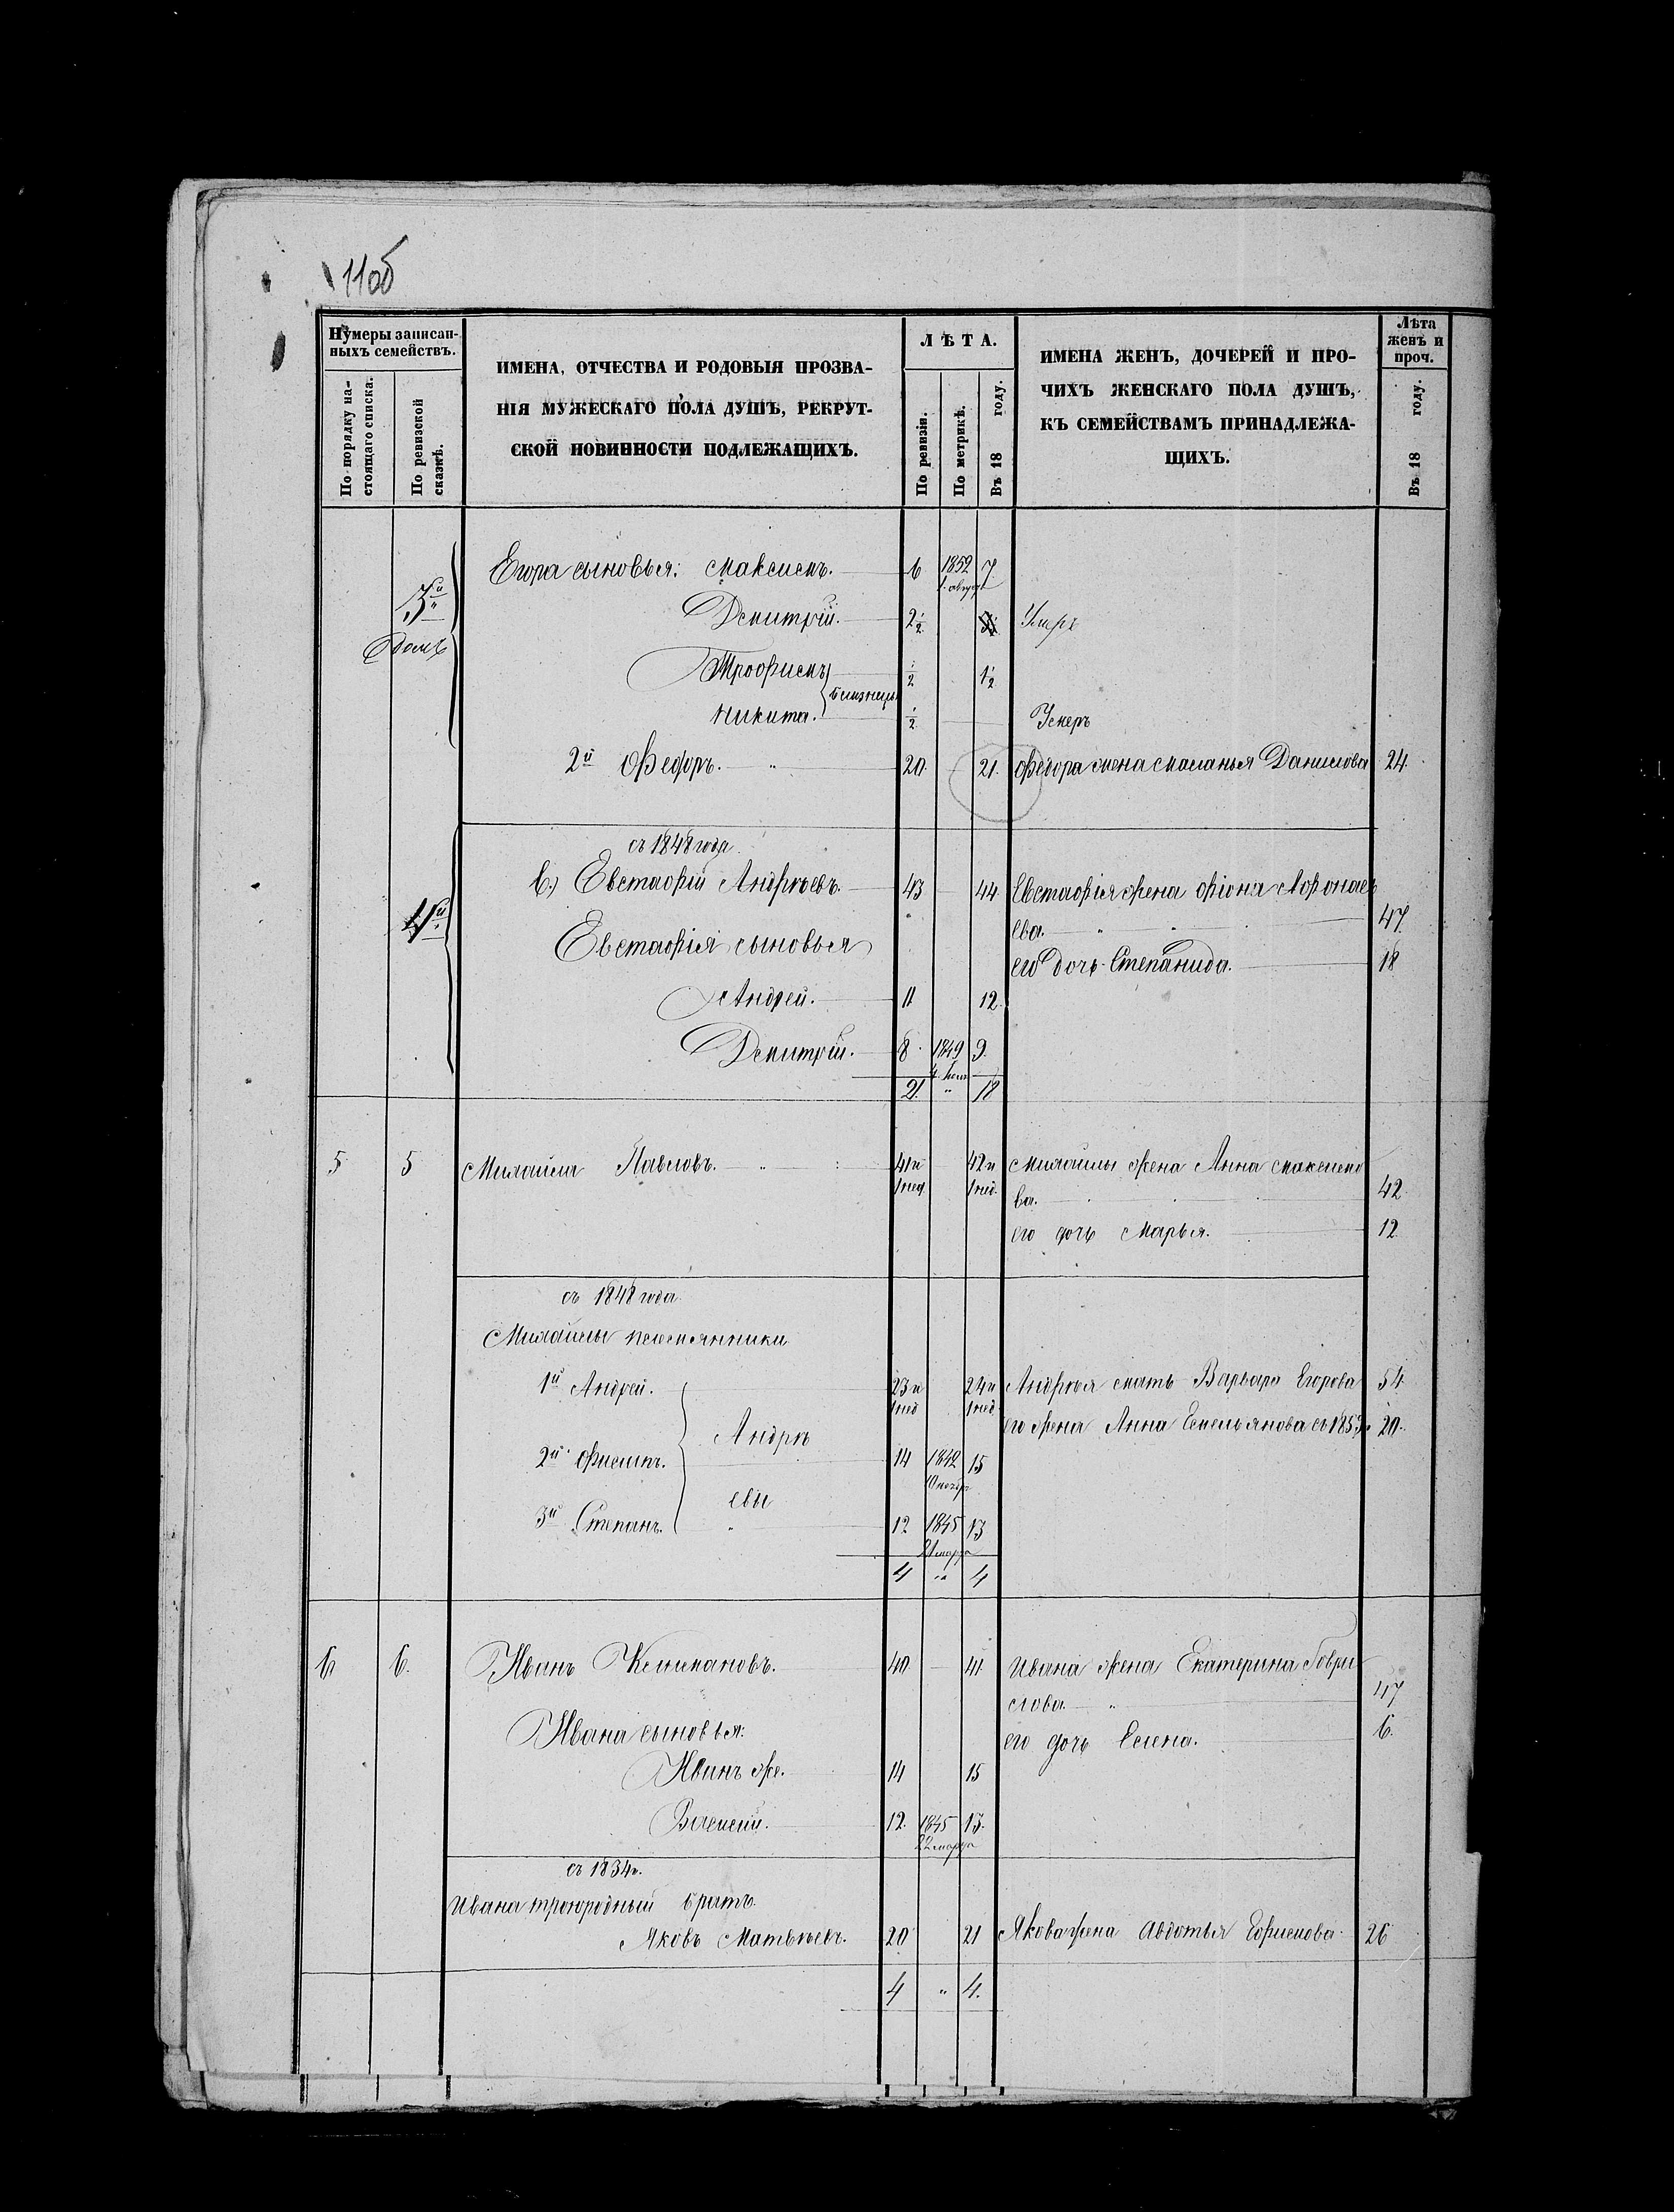 110б
Нумеры записан-
ныхъ семействъ.
По порядку на-
стоящаго списка.
По ревизской
сказкѣ.
ИМЕНА, ОТЧЕСТВА И РОДОВЫЯ ПРОЗВА-
НІЯ МУЖЕСКАГО ПОЛА ДУШЪ, РЕКРУТ-
СКОЙ ПОВИННОСТИ ПОДЛЕЖАЩИХЪ.
ЛѢТА.
По ревизіи.
По метрикѣ.
Въ 18 году.
ИМЕНА ЖЕНЪ, ДОЧЕРЕЙ И ПРО-
ЧИХЪ ЖЕНСКАГО ПОЛА ДУШЪ,
КЪ СЕМЕЙСТВАМЪ ПРИНАДЛЕЖА-
ЩИХЪ.
Лѣта
женъ и
проч.
Въ 18 году.
Егора сыновья: Максимъ. 6 1852 7
1. август
3й
домъ
Дмитрій. 2½ Умеръ
Трофимъ ½ 1½
близнецы
Никита. ½ Умеръ
2й Федоръ. 20. 21. Федора жена Маланья Данилова 24.
съ 1848 года
4й
Евстафій Андреевъ. 43 44 Евстафія жена
ева. 47.
Евстафія сыновья
его дочь Степанида. 18
Андрей. 11 12.
Дмитрій. 8. 1849 9.
21. " 18
5 5 Михайла Павловъ. 41 и 42 и Михайлы жена Анна Максимо
1 нед. 1 нед.
ва. 42.
его дочь Марья. 12
съ 1848 года.
Михайлы племянники
1й Андрей. 23 и 24 и Андрея мать Варвара Егорова 54
1 нед 1 нед.
его жена Анна Емельянова съ 1853. 20.
Андре
2й Филипъ. 14 1842 15
евы
3й Степанъ. 12 1845 13
21 марта
4 " 4
6 6. Иванъ 40. 41. Ивана жена Екатерина Гаври
лова. 47
Ивана сыновья: его дочь Елена. 6.
Иванъ же. 14 15
Василій. 12. 1845 13.
22 марта
съ 1834 г.
Ивана троюродный братъ.
Яковъ Матвѣевъ. 20 21 Якова жена Авдотья Ефимова. 26
4 " 4.